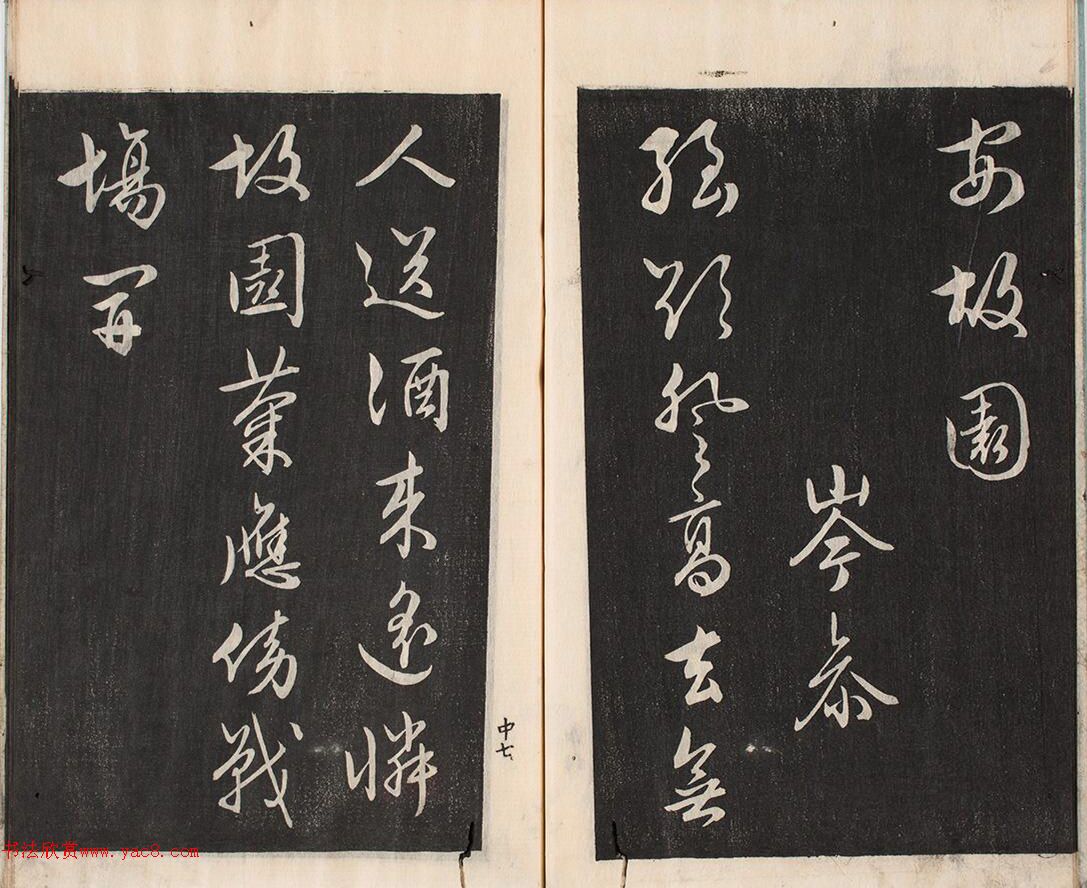 安故園
岑参
強欲登高去無
人送酒来遥憐
故園菊應傍戰
場開
中七
书法欣赏www.yac8.com